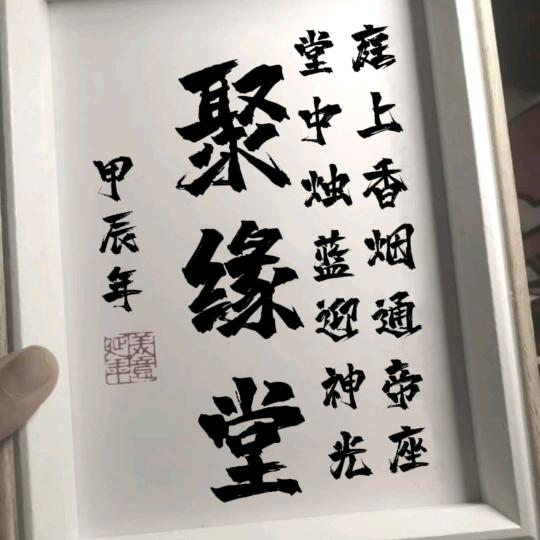 庭上香烟通帝座
堂中烛蓝迎神光
聚缘堂
甲辰年
美意延年